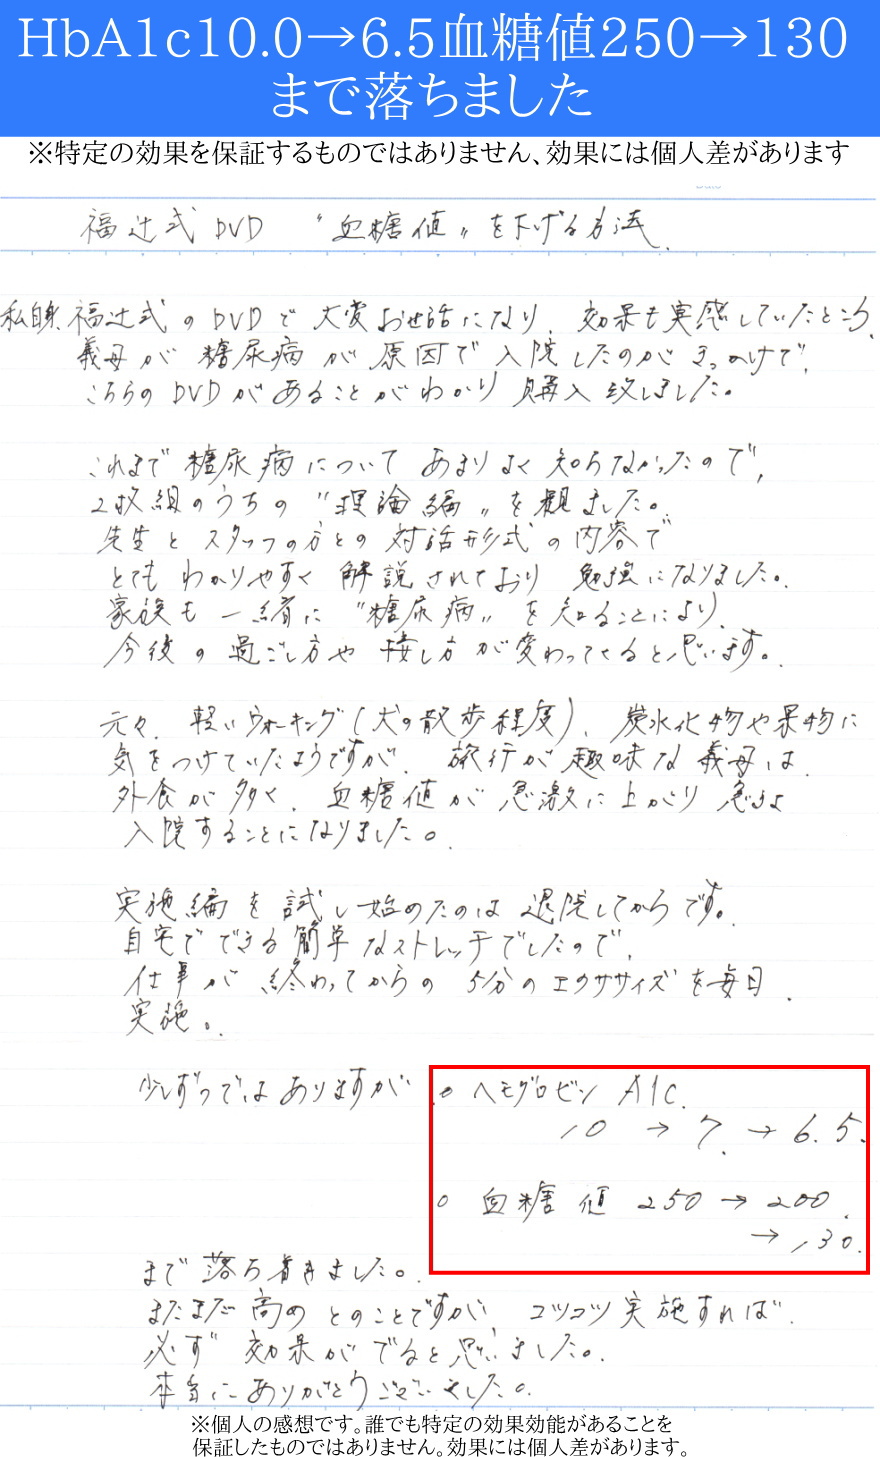 HbA1c10.0→6.5血糖値250→130
まで落ちました
※特定の効果を保証するものではありません、効果には個人差があります
福辻式 DVD "血糖値"を下げる方法.
私自身、福辻式のDVDで大変お世話になり、効果も実感していたところ、
義母が糖尿病が原因で入院したのがきっかけで、
こちらのDVDがあることがわかり購入致しました。
これまで糖尿病についてあまりよく知らなかったので、
2枚組のうちの"理論編"を観ました。
先生とスタッフの方との対話形式の内容で
とてもわかりやすく解説されており勉強になりました。
家族も一緒に"糖尿病"を知ることにより、
今後の過ごし方や接し方が変わってくると思います。
元々、軽いウォーキング(犬の散歩程度)、炭水化物や果物に
気をつけていたようですが、旅行が趣味な義母は、
外食が多く、血糖値が急激に上がり急きょ
入院することになりました。
実施編を試し始めたのは退院してからです。
自宅でできる簡単なストレッチでしたので、
仕事が終わってからの5分のエクササイズを毎日
実施。
少しずつではありますが
○ ヘモグロビン A1c.
10 → 7. → 6.5.
○ 血糖値 250 → 200.
→ 130.
まで落ち着きました。
まだまだ高めとのことですが、コツコツ実施すれば
必ず効果がでると思いました。
本当にありがとうございました。
※個人の感想です。誰でも特定の効果効能があることを
保証したものではありません。効果には個人差があります。